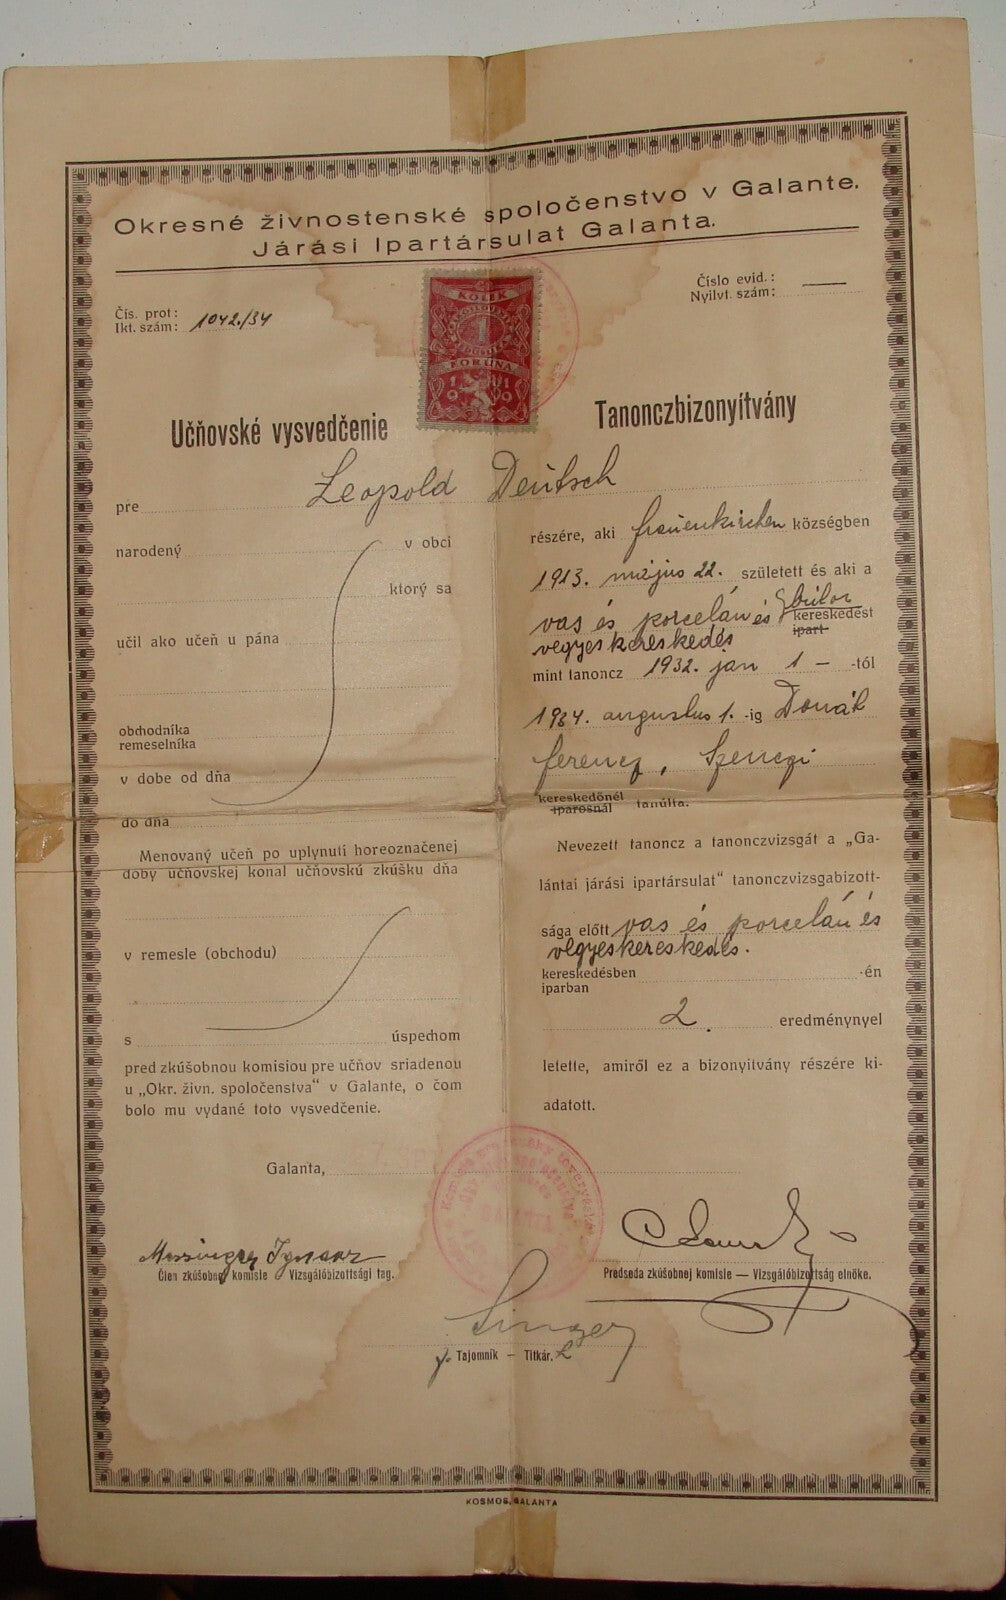 Okresné živnostenské spoločenstvo v Galante.
Járási Ipartársulat Galanta.
Čís. prot:
Ikt. szám: 1042./34
Číslo evid.:
Nyilvt. szám:
KOLEK
1
KORUNA
1919
Učňovské vysvedčenie
Tanonczbizonyítvány
pre Leopold Deutsch
narodený v obci
ktorý sa
učil ako učeň u pána
obchodníka
remeselníka
v dobe od dňa
do dňa
Menovaný učeň po uplynutí horeoznačenej
doby učňovskej konal učňovskú zkúšku dňa
v remesle (obchodu)
s úspechom
pred zkúšobnou komisiou pre učňov sriadenou
u „Okr. živn. spoločenstva“ v Galante, o čom
bolo mu vydané toto vysvedčenie.
részére, aki frauenkirchen községben
1913. május 22. született és aki a
vas és porcelán és bútor
kereskedést
ipart
vegyeskereskedés
mint tanoncz 1932. jan 1 - -tól
1934. augusztus 1. -ig Donát
ferencz, Szenczi
kereskedőnél
iparosnál tanúlta.
Nevezett tanoncz a tanonczvizsgát a „Ga-
lántai járási ipartársulat“ tanonczvizsgabizott-
sága előtt vas és porcelán és
vegyeskereskedés.
kereskedésben -én
iparban
2. eredménynyel
letette, amiről ez a bizonyitvány részére ki-
adatott.
Galanta,
GALANTA
Messinger Ignacz
Člen zkúšobnej komisie Vizsgálóbizottsági tag.
Predseda zkúšobnej komisie — Vizsgálóbizottság elnőke.
Singer
Tajomník — Titkár.
KOSMOS, GALANTA